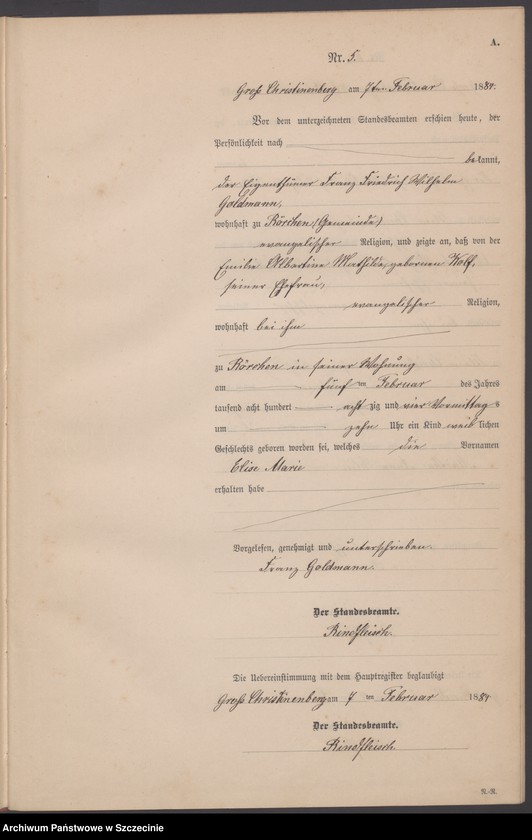 A.
Nr. 5.
Groß Christinenberg am 7ten Februar 1884.
Vor dem unterzeichneten Standesbeamten erschien heute, der
Persönlichkeit nach
bekannt,
der Eigenthümer Franz Friedrich Wilhelm
Goldmann,
wohnhaft zu Rörchen (Gemeinde)
evangelischer Religion, und zeigte an, daß von der
Emilie Albertine Mathilde, gebornen Wolf,
seiner Ehefrau,
evangelischer Religion,
wohnhaft bei ihm
zu Rörchen in seiner Wohnung
am fünften Februar des Jahres
tausend acht hundert achtzig und vier Vormittags
um zehn Uhr ein Kind weiblichen
Geschlechts geboren worden sei, welches die Vornamen
Elise Marie
erhalten habe
Vorgelesen, genehmigt und unterschrieben.
Franz Goldmann.
Der Standesbeamte.
Rindfleisch.
Die Uebereinstimmung mit dem Hauptregister beglaubigt
Groß Christinenberg am 7ten Februar 1884
Der Standesbeamte.
Rindfleisch.
Archiwum Państwowe w Szczecinie